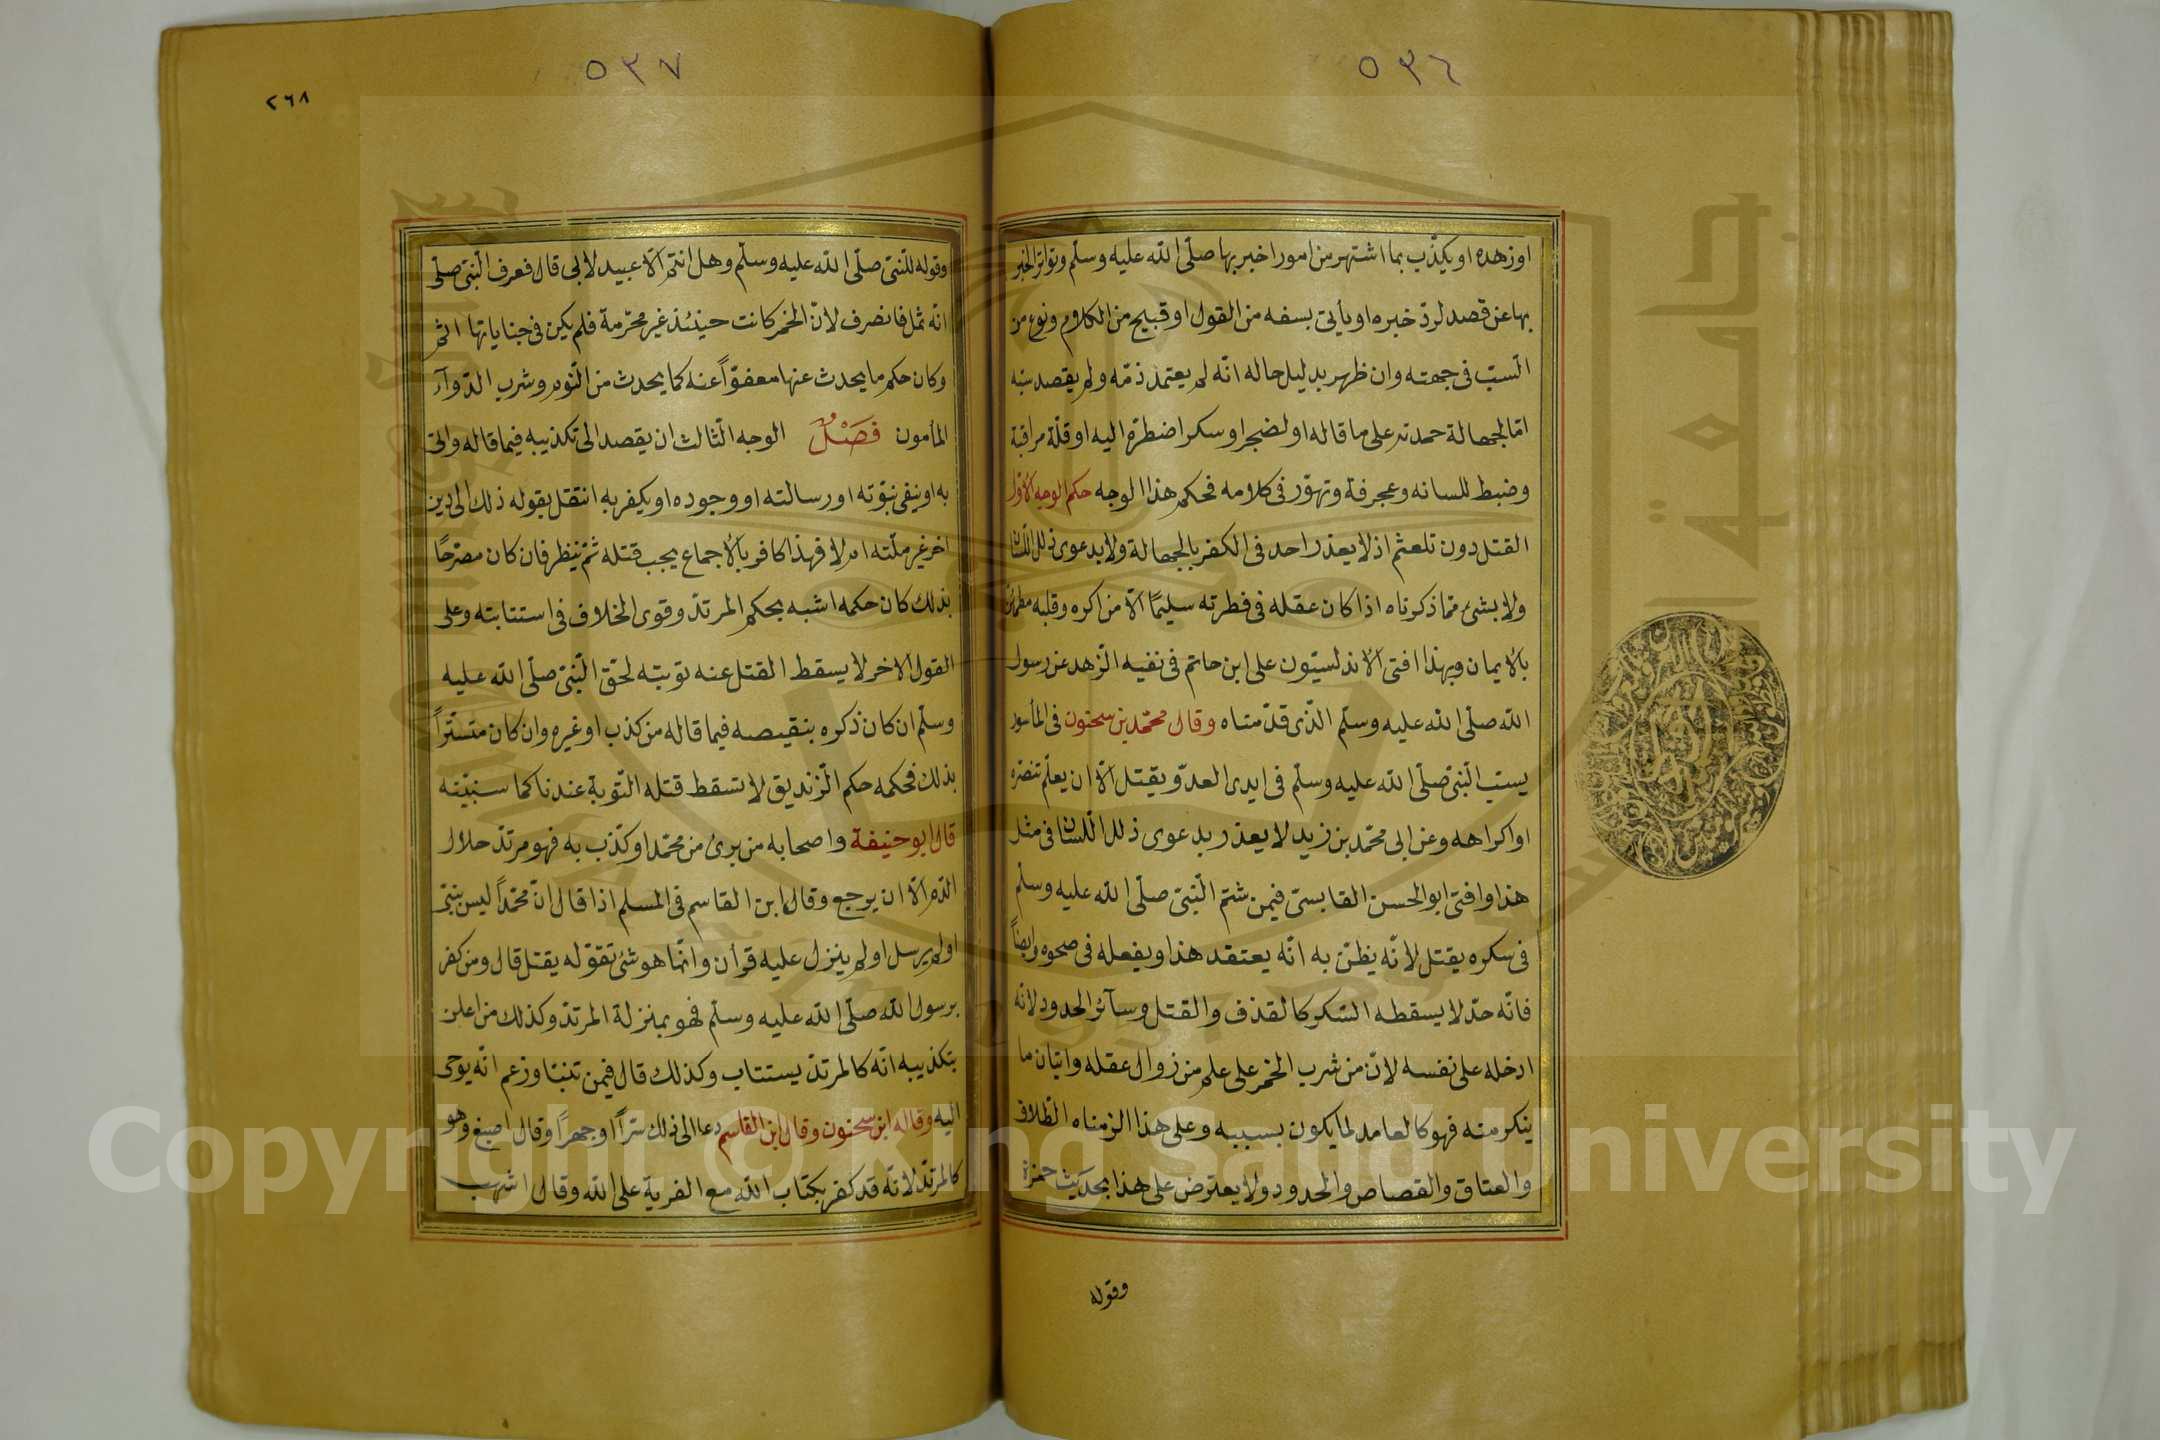 ٥٣٦
اوزهده او يكذّب بما اشتهر من امور اخبر بها صلّى الله عليه وسلّم وتواتر الخبر
بها عن قصد لردّ خبره او يأتى بسفه من القول او قبيح من الكلام ونوع من
السّبّ فى جهته وان ظهر بدليل حاله انّه لم يعتمد ذمّه ولم يقصد سبّه
امّا لجهالة حمدته على ما قاله او لضجر او سكر اضطرّه اليه او قلّة مراقبة
وضبط للسانه وعجرفة وتهوّر فى كلامه فحكم هذا الوجه حكم الوجه الاوّل
القتل دون تلعثم اذ لا يعذر احد فى الكفر بالجهالة ولا بدعوى زلل اللّسان
ولا بشئ ممّا ذكرناه اذا كان عقله فى فطرته سليمًا الّا من اكره وقلبه مطمئن
بالايمان وبهذا افتى الاندلسيّون على ابن حاتم فى نفيه الزّهد عن رسول
الله صلّى الله عليه وسلّم الّذى قدّمناه وقال محمّد بن سحنون فى المأسور
يسبّ النّبىّ صلّى الله عليه وسلّم فى ايدى العدوّ يقتل الّا ان يعلم تنصّره
او اكراهه وعن ابى محمّد بن زيد لا يعذر بدعوى زلل اللّسان فى مثل
هذا وافتى ابو الحسن القابسىّ فيمن شتم النّبىّ صلّى الله عليه وسلّم
فى سكره يقتل لانّه يظنّ به انّه يعتقد هذا ويفعله فى صحوه وايضاً
فانّه حدّ لا يسقطه السّكر كالقذف والقتل وسآئر الحدود لانّه
ادخله على نفسه لانّ من شرب الخمر على علم من زوال عقله واتيان ما
ينكر منه فهو كالعامد لما يكون بسببه وعلى هذا الزمناه الطّلاق
والعتاق والقصاص والحدود ولا يعترض على هذا بحديث حمزة
وقوله
٥٣٧
٢٦٨
وقوله للنّبىّ صلّى الله عليه وسلّم وهل انتم الّا عبيد لابى قال فعرف النّبىّ صلّى
انّه ثمل فانصرف لانّ الخمر كانت حينئذ غير محرّمة فلم يكن فى جناياتها اثم
وكان حكم ما يحدث عنها معفوّاً عنه كما يحدث من النّوم وشرب الدّوآء
المأمون فصل الوجه الثّالث ان يقصد الى تكذيبه فيما قاله واتى
به او ينفى نبوّته او رسالته او وجوده او يكفر به انتقل بقوله ذلك الى دين
اخر غير ملّته ام لا فهذا كافر بالاجماع يجب قتله ثمّ ينظر فان كان مصرّحًا
بذلك كان حكمه اشبه بحكم المرتدّ وقوى الخلاف فى استتابته وعلى
القول الاخر لا يسقط القتل عنه توبته لحقّ النّبىّ صلّى الله عليه
وسلّم ان كان ذكره بنقيصه فيما قاله من كذب او غيره وان كان متستّراً
بذلك فحكمه حكم الزّنديق لا تسقط قتله التّوبة عندنا كما سنبيّنه
قال ابو حنيفة واصحابه من برئ من محمّد او كذّب به فهو مرتدّ حلال
الدّم الّا ان يرجع وقال ابن القاسم فى المسلم اذا قال انّ محمّداً ليس بنبىّ
او لم يرسل او لم ينزل عليه قرأن وانّما هو شئ تقوّله يقتل قال ومن كفر
برسول الله صلّى الله عليه وسلّم فهو بمنزلة المرتدّ وكذلك من اعلن
بتكذيبه انّه كالمرتدّ يستتاب وكذلك قال فيمن تنبّأ وزعم انّه يوحى
اليه وقاله ابن سحنون وقال ابن القاسم دعا الى ذلك سرّاً او جهراً وقال اصبغ وهو
كالمرتدّ لانّه قد كفر بكتاب الله مع الفرية على الله وقال اشهب
جامعة
Copyright © King Saud University